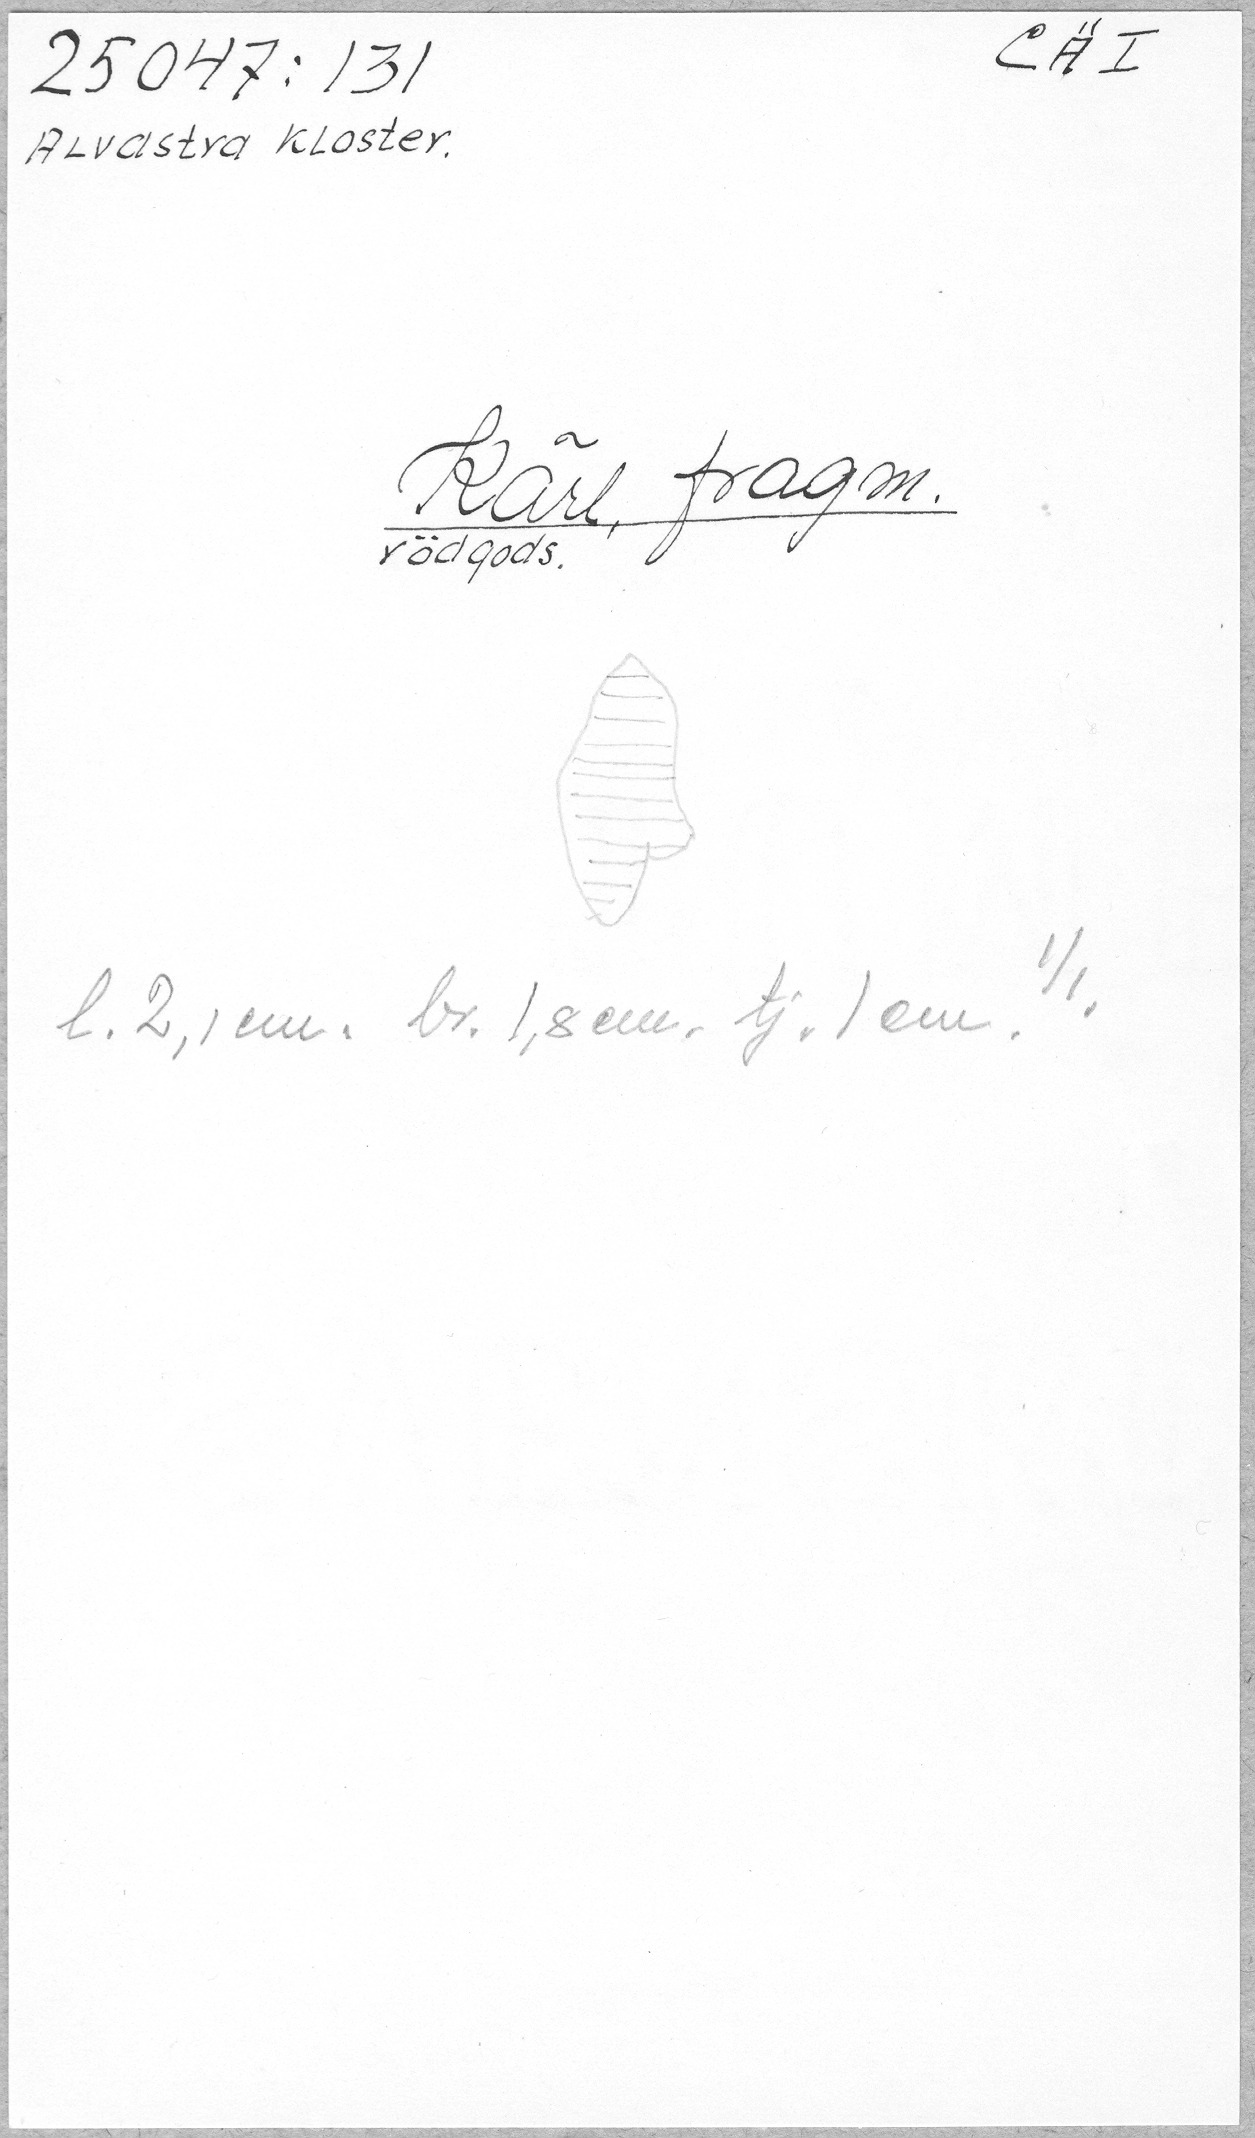 25047:131
CÄI
Alvastra Kloster.
Kärl, fragm.
rödgods.
l. 2,1 cm. br. 1,8 cm. tj. 1 cm. 1/1.